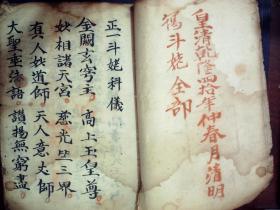 皇清乾隆四拾年仲春月清明
馮斗姥全部
正一斗姥科儀
金闕玄穹主 高上玉皇尊
妙相諸天宮 慈光世三界
有人妙道師 天人意丈師
大聖垂法語 讚揚無窮盡